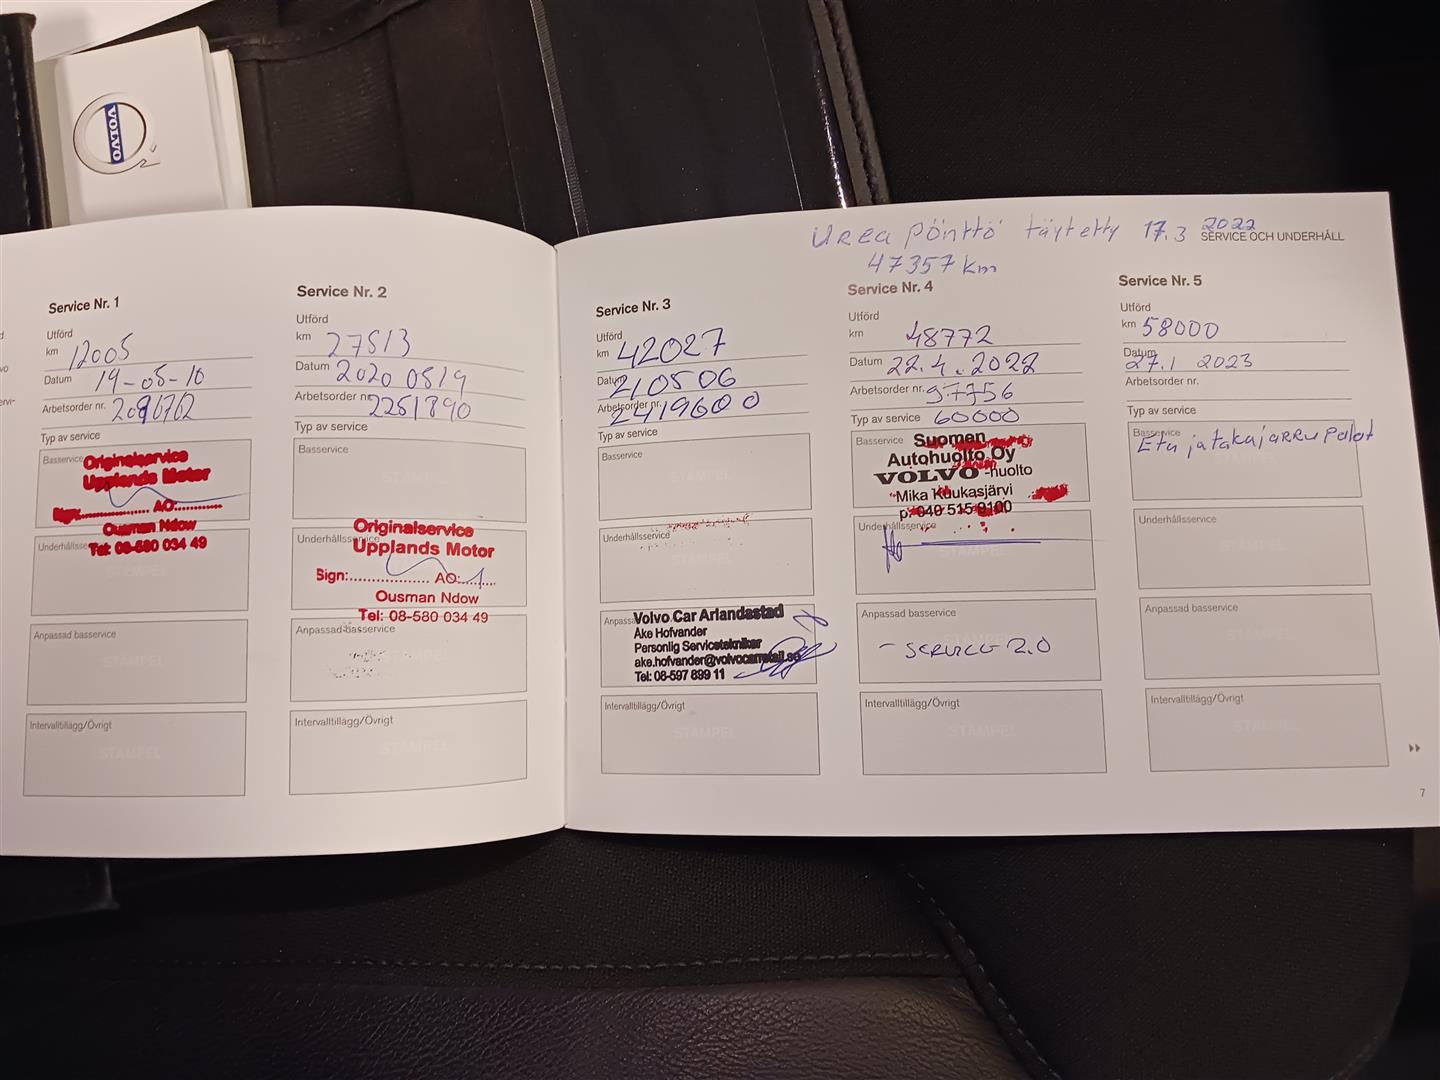 VOLVO
Urea pönttö täytetty 17.3 2022
SERVICE OCH UNDERHÅLL
47357 km
Service Nr. 1
Utförd
km 12005
Datum 19-05-10
Arbetsorder nr.
Typ av service
Basservice
Originalservice
Upplands Motor
Sign: AO:
Ousman Ndow
Tel: 08-580 034 49
Underhållsservice
STÄMPEL
Anpassad basservice
STÄMPEL
Intervalltillägg/Övrigt
STÄMPEL
Service Nr. 2
Utförd
km 27513
Datum 2020 0519
Arbetsorder nr. 2251890
Typ av service
Basservice
STÄMPEL
Underhållsservice
Originalservice
Upplands Motor
Sign:.................. AO:
Ousman Ndow
Tel: 08-580 034 49
Anpassad basservice
Intervalltillägg/Övrigt
STÄMPEL
Service Nr. 3
Utförd
km 42027
Datum 210506
Arbetsorder nr. 2419600
Typ av service
Basservice
Underhållsservice
Anpassad
Volvo Car Arlandastad
Åke Hofvander
Personlig Servicetekniker
ake.hofvander@volvocarretail.se
Tel: 08-597 899 11
Intervalltillägg/Övrigt
STÄMPEL
Service Nr. 4
Utförd
km 48772
Datum 22.4.2022
Arbetsorder nr. 97756
Typ av service 60000
Basservice
Suomen
Autohuolto Oy
VOLVO-huolto
Mika Kuukasjärvi
p. 040 515 9100
Underhållsservice
STÄMPEL
Anpassad basservice
- SERVICE 2.0
Intervalltillägg/Övrigt
STÄMPEL
Service Nr. 5
Utförd
km 58000
Datum 27.1 2023
Arbetsorder nr.
Typ av service
Basservice
Etu ja takajarru palat
Underhållsservice
STÄMPEL
Anpassad basservice
STÄMPEL
Intervalltillägg/Övrigt
STÄMPEL
7